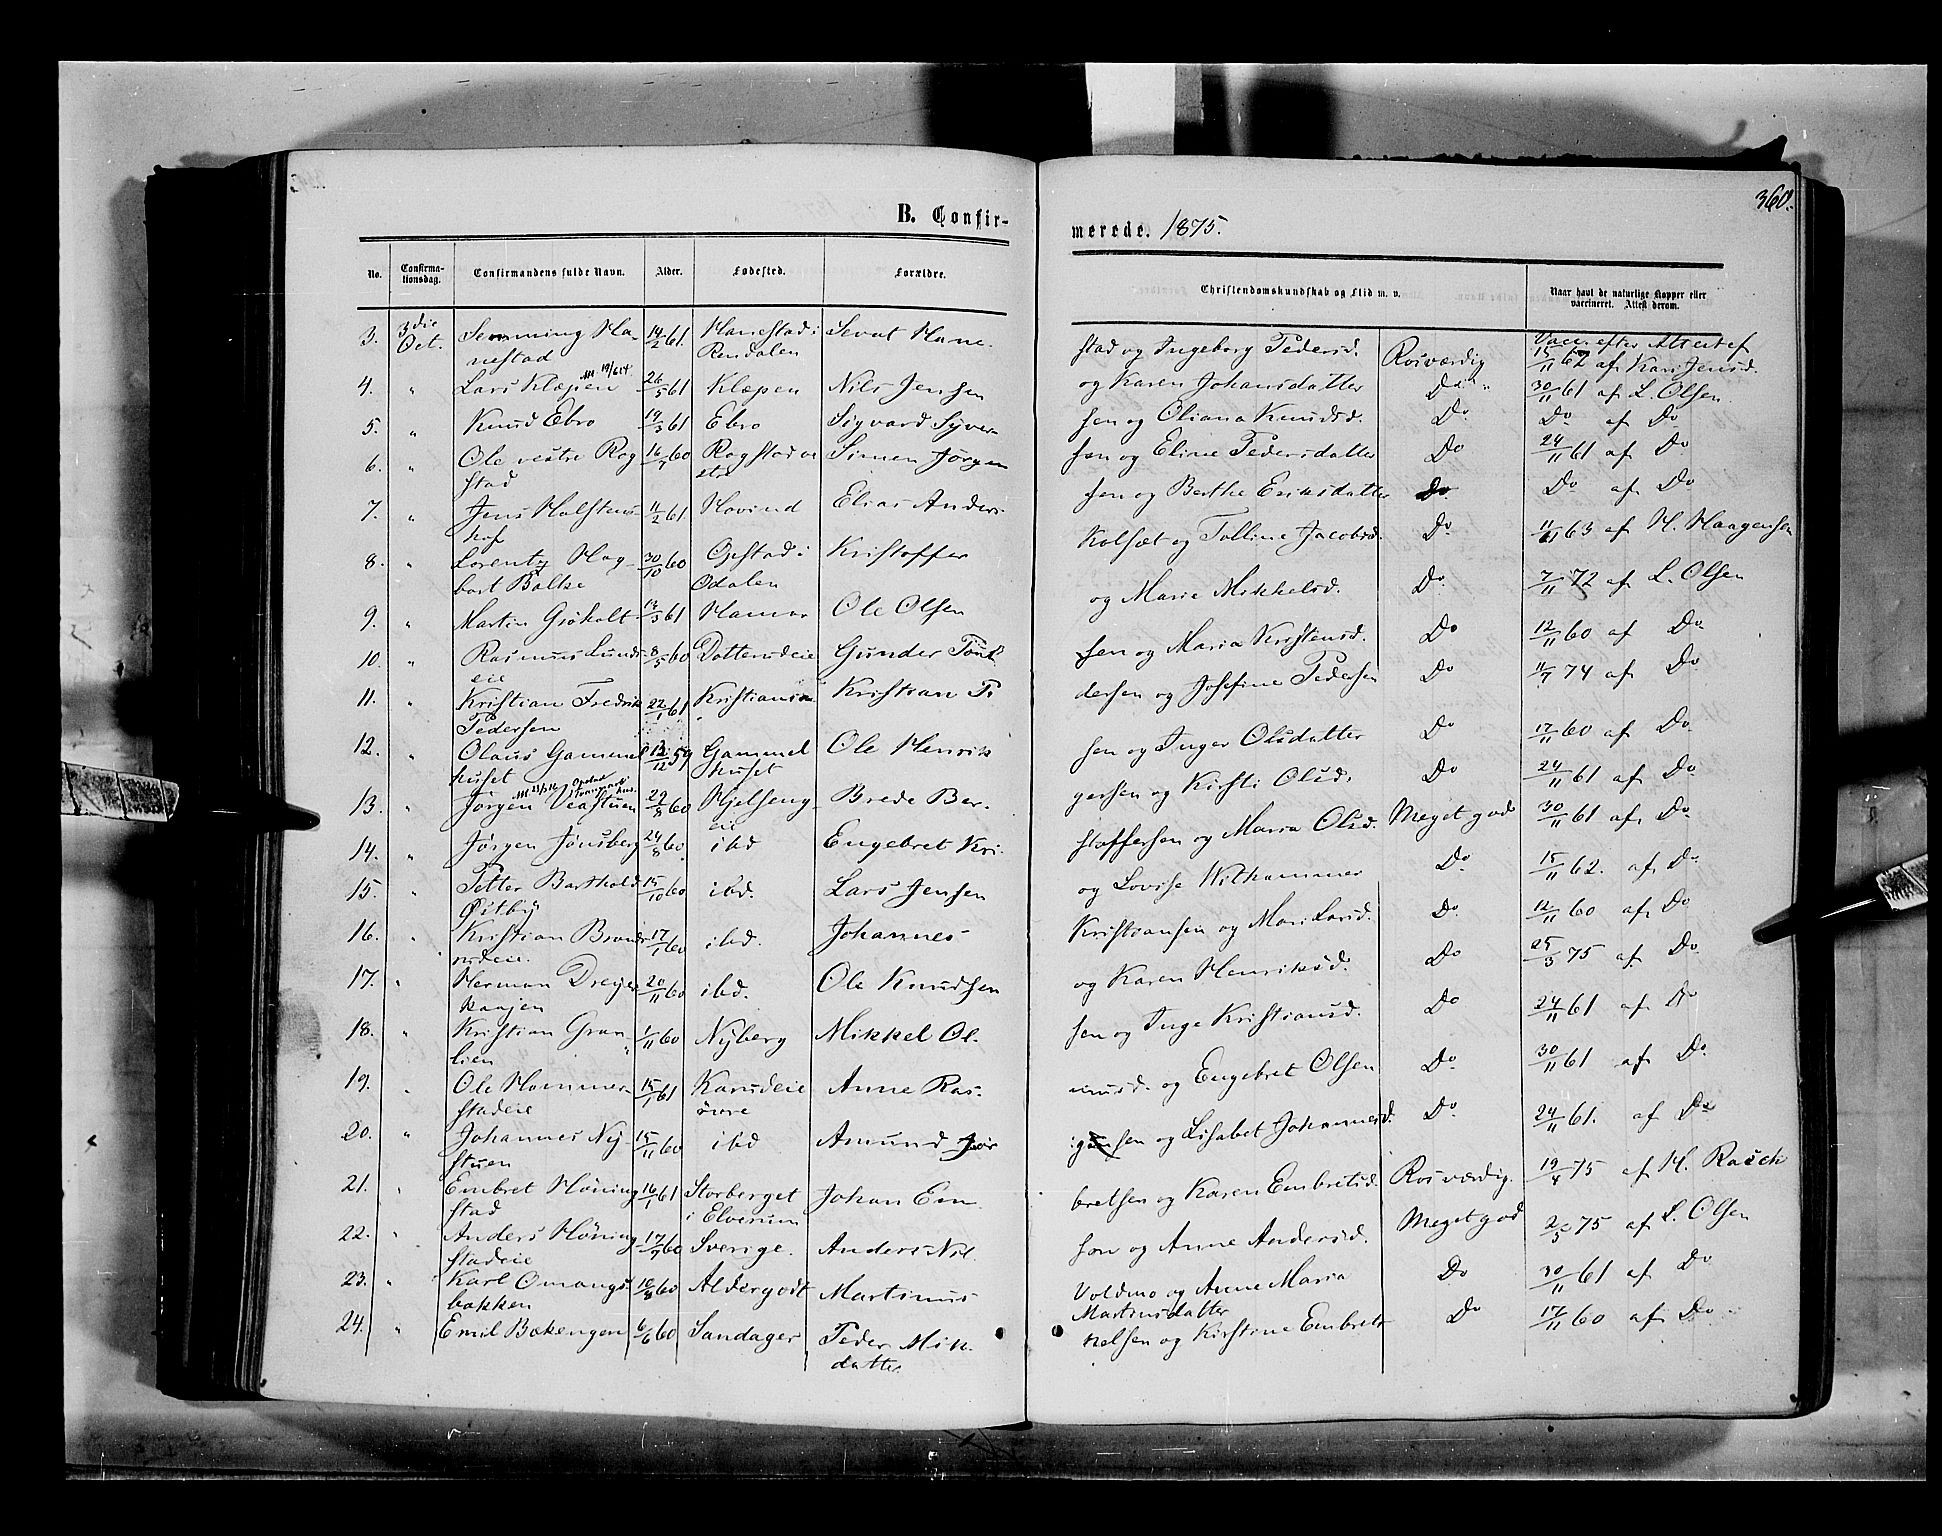 360.
B. Confir-
merede. 1875.
No.
Confirma-
tionsdag.
Confirmandens fulde Navn.
Alder.
Fødested.
Forældre.
Christendomskundskab og Flid m. v.
Naar havt de naturlige Kopper eller
vaccineret. Attest derom.
3. 3die Semming Ha- 14/2 61 Hanestad i Sevat Hane- stad og Ingeborg Pedersd. Rosværdig Vacc. efter Attest af
Oct. nestad Rendalen 15/11 62 af Kari Jensd.
4. " Lars Klæpen 26/5 61 Klæpen Nils Jensen og Karen Johansdatter Do 30/11 61 af L. Olsen.
5. " Knud Ebro 19/3 61 Ebro Sigvard Syver- sen og Oliana Knudsd. Do Do af Do
6. " Ole vestre Rog 16/7 60 Rogstad ve Simen Jørgen sen og Eline Pedersdatter Do 24/11 61 af Do
stad stre
7. " Jens Holstens 11/2 61 Hovind Elias Anders- sen og Berthe Eriksdatter Do Do af Do
hof
8. " Lorentz Hag- 30/10 60 Opstad i Kristoffer Kolsæt og Tolline Jacobsd. Do 11/11 63 af H. Haagensen
bart Boltze Odalen
9. " Martin Gjøholt 13/3 61 Hamar Ole Olsen og Marie Mikkelsd. Do 7/11 72 af L. Olsen
10. " Rasmus Lunds 8/5 60 Dotterudeie Gunder Tønt sen og Maria Kristensd. Do 12/11 60 af Do
eie
11. " Kristian Fredrik 22/1 61 Kristiania Kristian Pe dersen og Josefine Pedersen Do 11/7 74 af Do
Pedersen
12. " Olaus Gammel 13/12 59 Gammel Ole Henrik sen og Inger Olsdatter Do 17/11 60 af Do
huset huset
13. " Jørgen Veastuen 29/8 60 Hjelseng- Brede Bør- gersen og Kirsti Olsd. Do 24/11 61 af Do
eie
14. " Jørgen Jønsberg 24/8 60 ibd Engebret Kri- stoffersen og Maria Olsd. Meget god 30/11 61 af Do
15. " Petter Barthold 15/10 60 ibd. Lars Jensen og Lovise Wilhammer Do 15/11 62. af Do
Østby
16. " Kristian 17/1 60 ibd. Johannes Kristiansen og Mari Larsd. Do 12/11 60 af Do
rudeie.
17. " Herman Dreyer 20/11 60 ibd. Ole Knudsen og Karen Henriksd. Do 25/3 75 af Do
18. " Kristian Gran 1/11 60 Nyberg Mikkel Ol- sen og Inge Kristiansd. Do 24/11 61 af Do
lien
19. " Ole Hommer- 15/1 61 Karudeie Anne Ras- musd. og Engebret Olsen Do 30/11 61 af Do
stadeie øvre
20. " Johannes Ny- 15/11 60 ibd Amund Jør- gensen og Lisabet Johannesd. Do 24/11 61. af Do
stuen
21. " Embret Høning 16/1 61 Storberget Johan Em- bretsen og Karen Embretsd. Rosværdig. 19/4 75 af H. Rasch
stad i Elverum
22. " Anders Høning 17/7 60 Sverige. Anders Nil- son og Anne Andersd. Meget god 2/5 75 af L. Olsen
stadeie
23. " Karl Omangs 10/8 60 Aldergodt Martinus Voldmo og Anne Maria Do 30/11 61 af Do
bakken Martinsdatter
24. " Emil Bekengen 6/6 60 Sandager Peder Mik- kelsen og Kirstine Embrets Do 17/11 60 af Do
datter